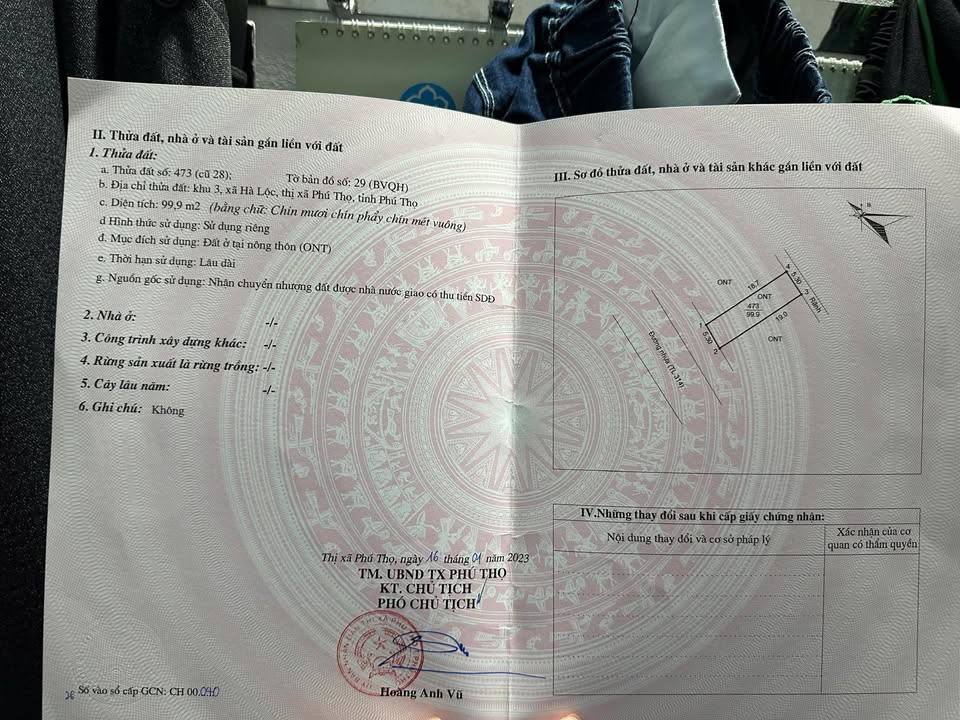 II. Thửa đất, nhà ở và tài sản gắn liền với đất
1. Thửa đất:
a. Thửa đất số: 473 (cũ 28); Tờ bản đồ số: 29 (BVQH)
b. Địa chỉ thửa đất: khu 3, xã Hà Lộc, thị xã Phú Thọ, tỉnh Phú Thọ
c. Diện tích: 99,9 m2 (bằng chữ: Chín mươi chín phẩy chín mét vuông)
d Hình thức sử dụng: Sử dụng riêng
đ. Mục đích sử dụng: Đất ở tại nông thôn (ONT)
e. Thời hạn sử dụng: Lâu dài
g. Nguồn gốc sử dụng: Nhận chuyển nhượng đất được nhà nước giao có thu tiền SDĐ
2. Nhà ở: -/-
3. Công trình xây dựng khác: -/-
4. Rừng sản xuất là rừng trồng: -/-
5. Cây lâu năm: -/-
6. Ghi chú: Không
Thị xã Phú Thọ, ngày 16 tháng 01 năm 2023
TM. UBND TX PHÚ THỌ
KT. CHỦ TỊCH
PHÓ CHỦ TỊCH
Hoàng Anh Vũ
Số vào sổ cấp GCN: CH 00.040
III. Sơ đồ thửa đất, nhà ở và tài sản khác gắn liền với đất
B
ONT
18.7
4
5.30
3
Rãnh
ONT
473
99.9
19.0
1
5.30
2
ONT
Đường nhựa (TL 314)
IV.Những thay đổi sau khi cấp giấy chứng nhận:
Nội dung thay đổi và cơ sở pháp lý
Xác nhận của cơ
quan có thẩm quyền